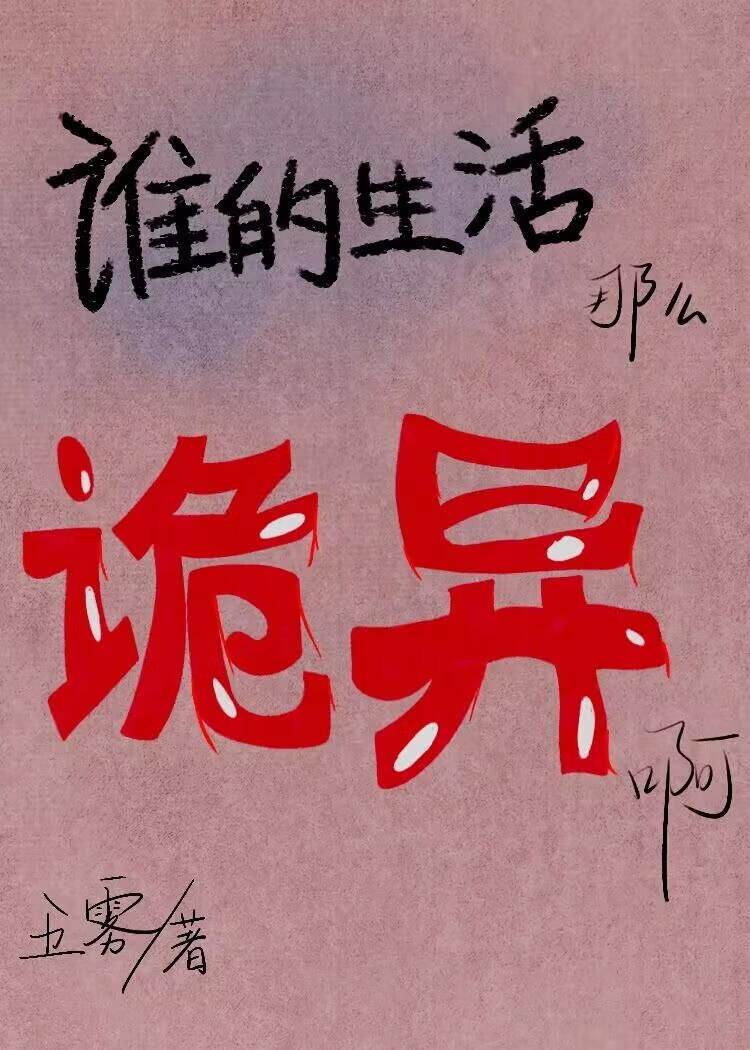 谁的生活
那么
诡异
啊
五雾/著